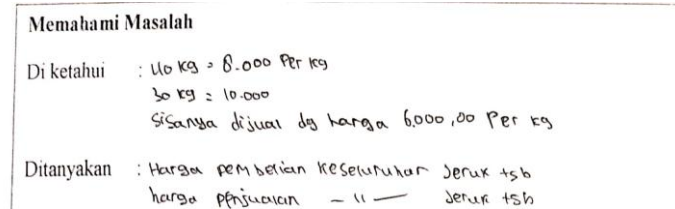 Memahami Masalah
Di ketahui : 40 kg = 8.000 Per kg
30 kg = 10.000
Sisanya dijual dg harga 6.000,00 Per kg
Ditanyakan : Harga pembelian keseluruhan Jeruk tsb
harga penjualan - 11 - Jeruk tsb